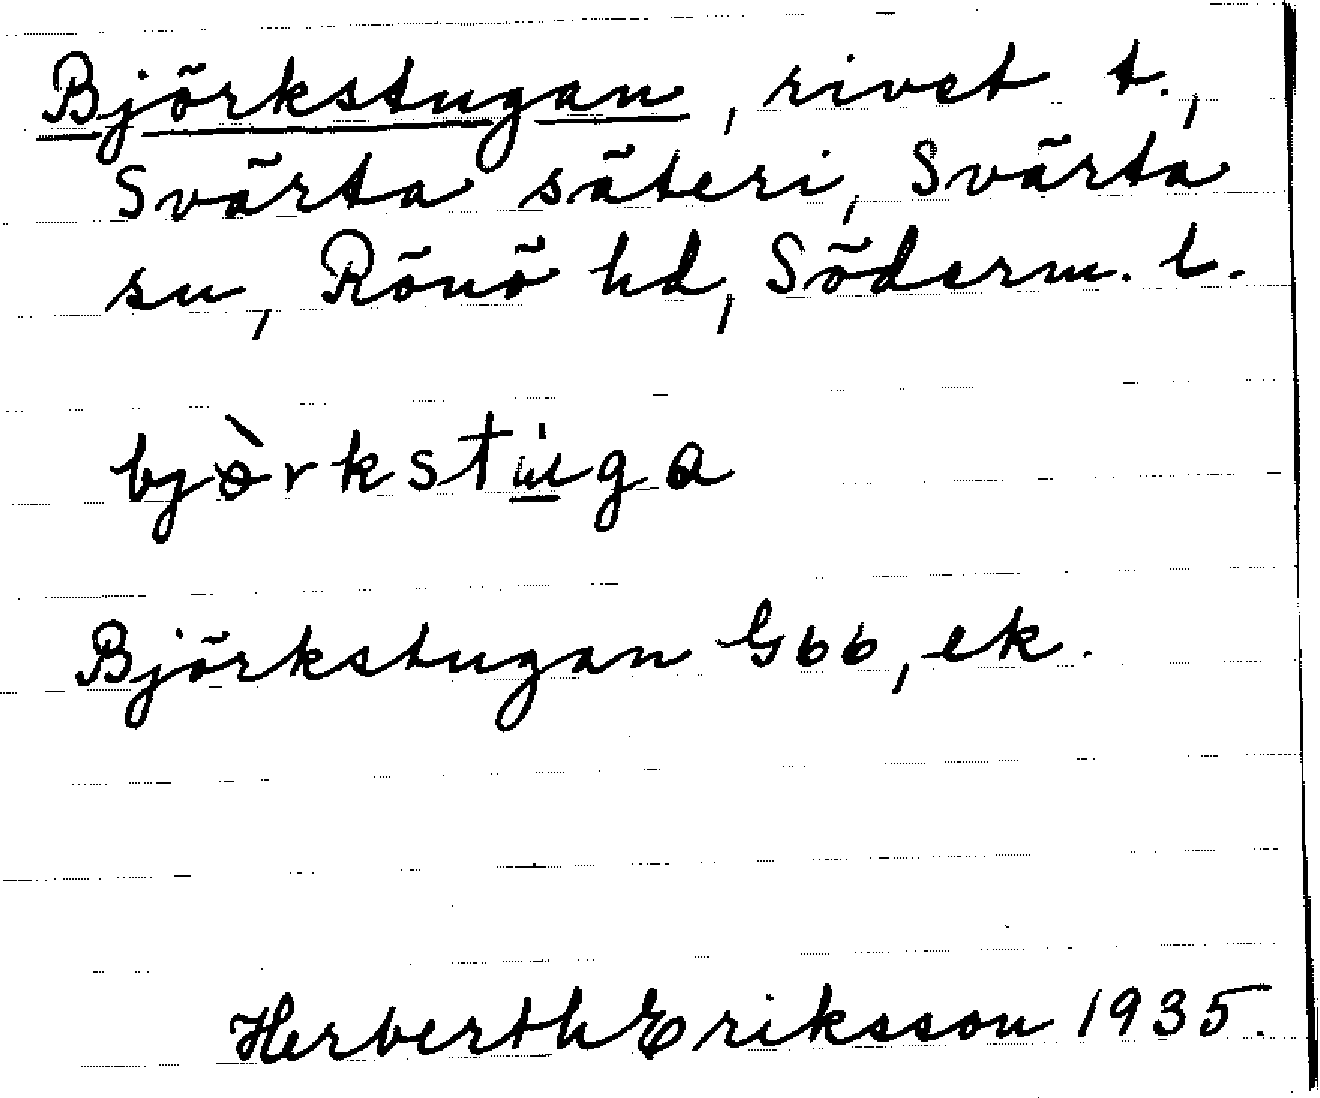 Björkstugan, rivet t.,
Svärta säteri, Svärta
sn, Rönö hd, Söderm. l.
bjòrkstu̇ga
Björkstugan Gbb, ek.
Herberth Eriksson 1935.